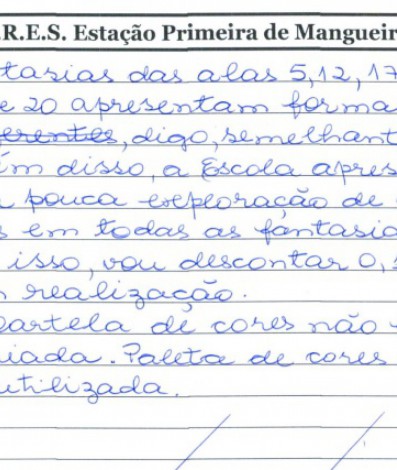 .R.E.S. Estação Primeira de Mangueir
tasias das alas 5, 12, 17
e 20 apresentam forma
ferentes, digo, semelhant
ém disso, a Escola apres
pouca exploração de
s em todas as fantasia
isso, vou descontar 0,
realização.
cartela de cores não
iada. Paleta de cores
utilizada.